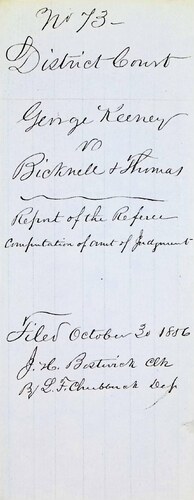 No 73 —
District Court
George Keeney
vs
Bicknell & Thomas
Report of the Referee
Computation of amt of Judgment
Filed October 30 1886
J. H. Bostwick Clk
By L. F. Chubbuck Dep